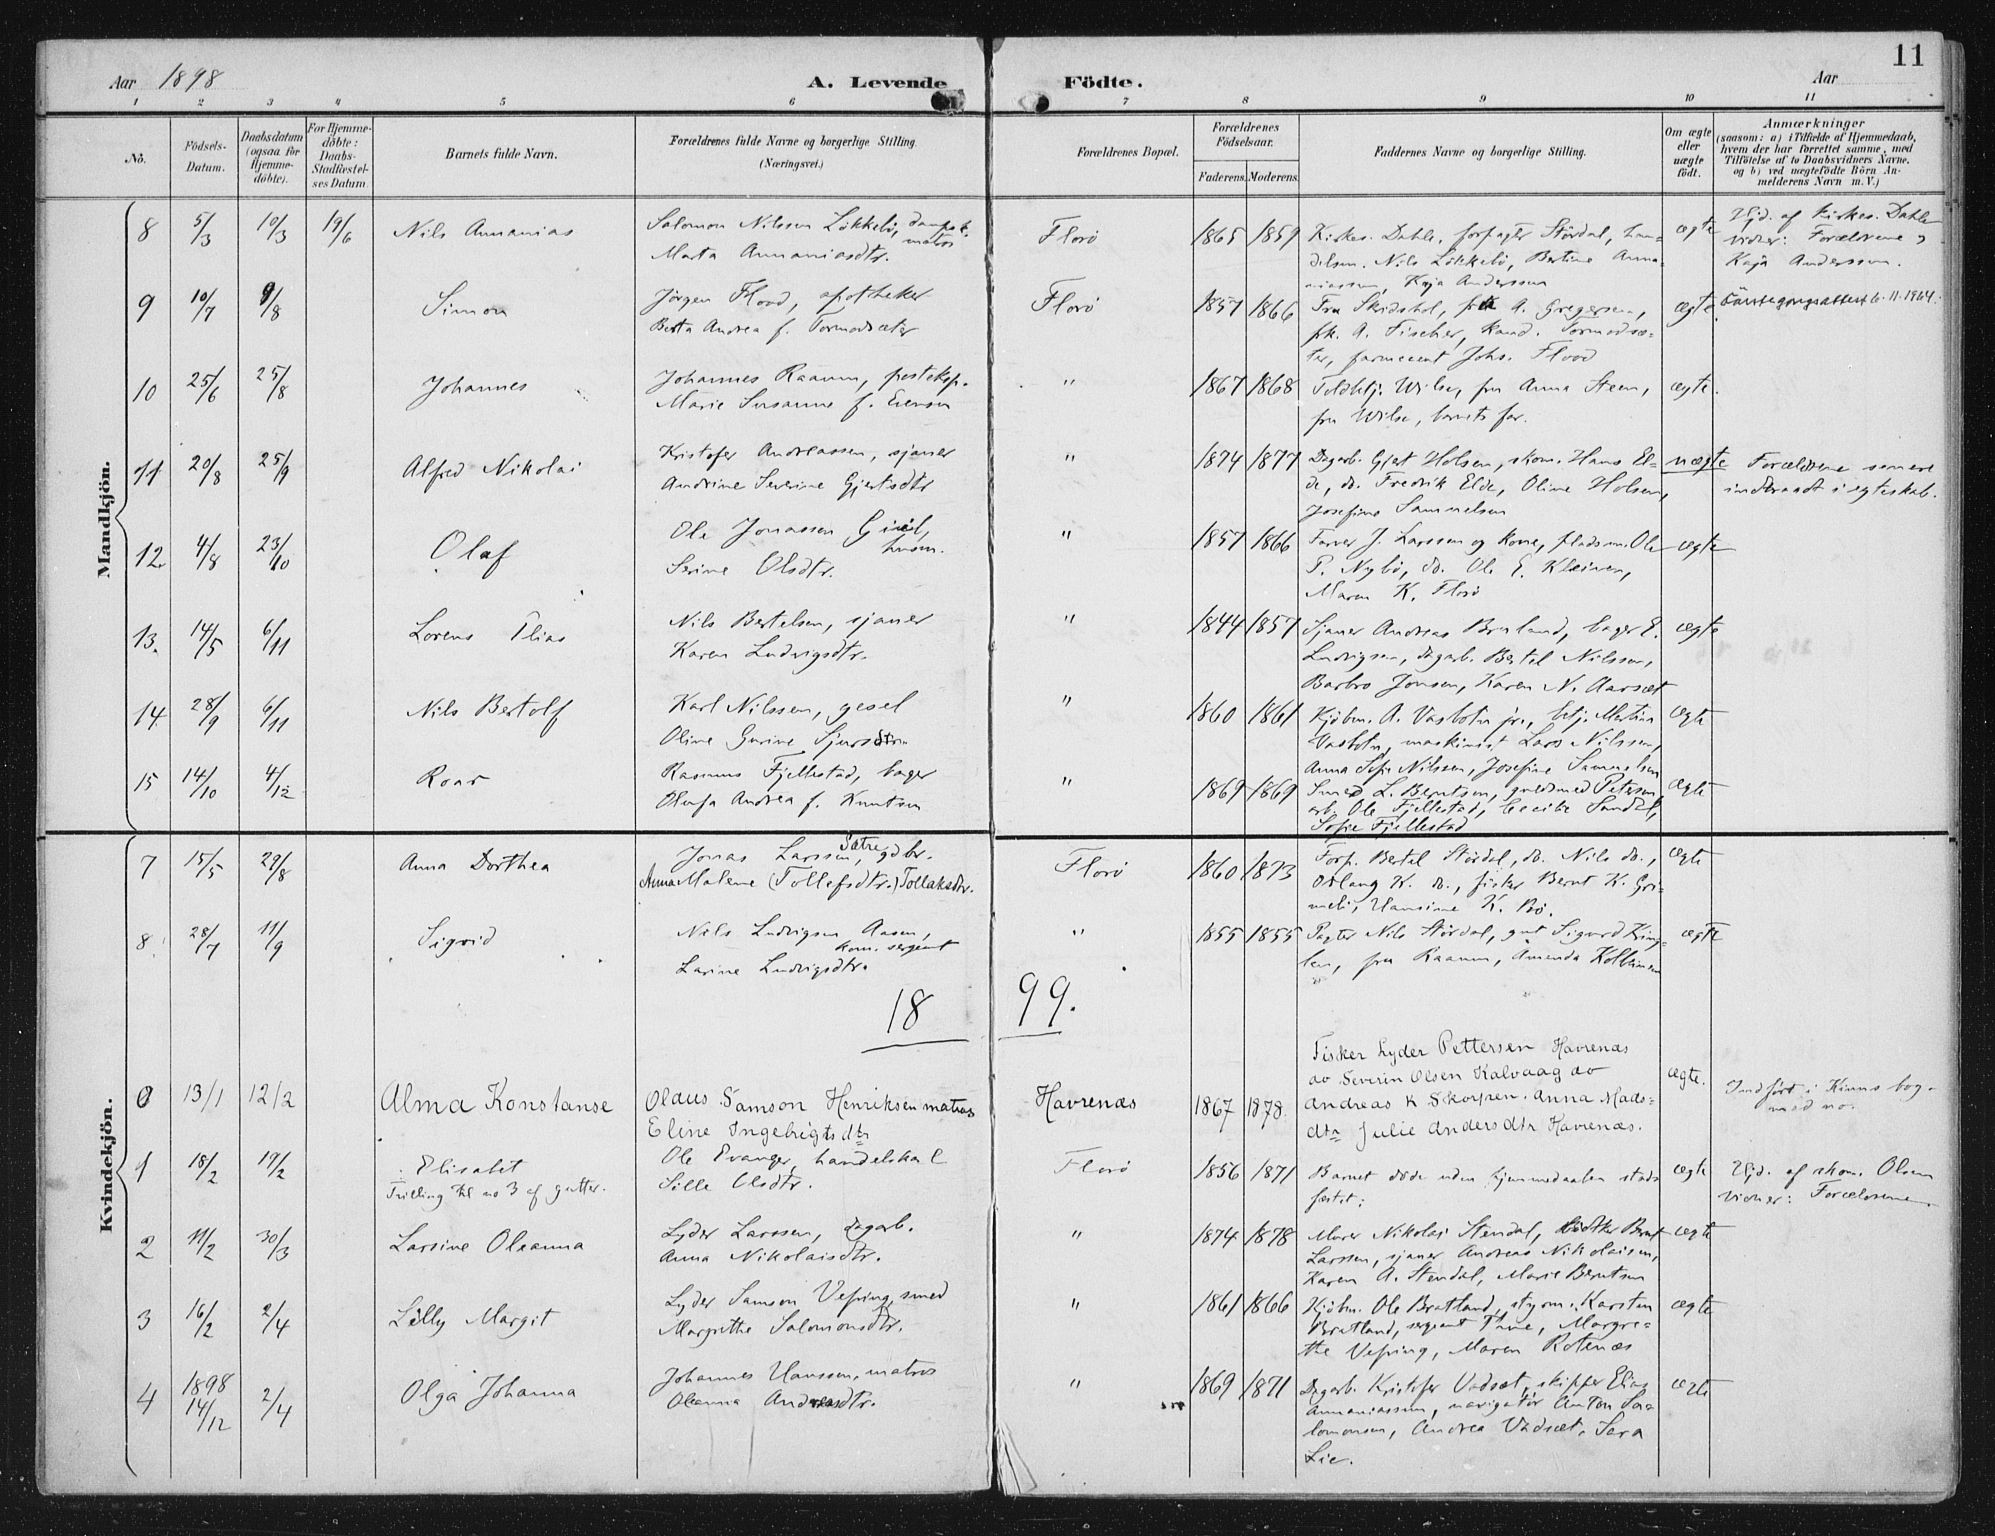 11
Aar 1898
A. Levende
Födte.
Aar
1 2 3 4 5 6 7 8 9 10 11
No.
Födsels-Datum.
Daabsdatum (ogsaa for Hjemme-döbte).
For Hjemme-döbte: Daabs-Stadfæstel-ses Datum
Barnets fulde Navn.
Forældrenes fulde Navne og borgerlige Stilling (Næringsvei.)
Forældrenes Bopæl.
Forældrenes Födselsaar.
Faderens. Moderens.
Faddernes Navne og borgerlige Stilling.
Om ægte eller uægte födt.
Anmærkninger
(saasom: a) i Tilfælde af Hjemmedaab, hvem der har forrettet samme, med Tilföielse af to Daabsvidners Navne. og b) ved uægtefödte Börn An-melderens Navn m. V.)
Mandkjön.
8 5/3 10/3 19/6 Nils Annanias
Salomon Nilsen Lökkebö, dampsk. matros
Mata Annaniasdtr.
Florö 1865 1859
Kirkes. Dahle, forpagter Stördal, han-
delsm. Nils Lökkebö, Bertine Anna-
niassen, Kaja Anderssen
ægte
Hjd. af Kirkes. Dahle
vidner: Forældrene og
Kaja Anderssen.
9 10/7 9/8 Simon
Jörgen Flood, apotheker
Berta Andrea f. Tormodsæter
Florö 1857 1866
Fru Skridshol, frk A. Gregersen,
frk. A. Fischer, Kand. Tormodsæ-
ter, farmaceut Johs. Flood
ægte
6.11.1964.
10 25/6 25/8 Johannes
Johannes Raaum, posteksp.
Marie Susanne f. Evensen
" 1867 1868
Toldbtj. Wilse, fru Anna Steen,
fru Wilse, barnets far.
ægte.
11 20/8 25/9 Alfred Nikolai
Kristofer Andreassen, sjauer
Andrine Severine Gjertsdtr
" 1874 1877
Dagarb. Gjert Holsen, skom. Hans El-
de, do. Fredrik Elde, Oline Holsen,
Josefine Samuelsen
uægte
Forældrene senere
indtraadt i egteskab.
12. 4/8 23/10 Olaf
Ole Jonassen
husm.
Serine Olsdtr.
" 1857 1866
Farver J. Larssen og kone, pladsm. Ole
P. Nybö, do. Ole E. Kleiven,
Maren K. Florö
ægte
13. 14/5 6/11 Lorens Elias
Nils Bertelsen, sjauer
Karen Ludvigsdtr.
" 1844 1857
Sjauer Andreas Bruland, bager E.
Ludvigsen, dagarb. Bertel Nilssen,
Barbro Jonsen, Karen N. Aarsæt
ægte
14. 28/9 6/11 Nils Bertolf
Karl Nilssen, gesel
Oline Gurine Sjursdtr
" 1860 1861
Kjöbm. A. Vasbotn jr., betj. Martin
Vasbotn, maskinist Lars Nilssen,
Anna Sofie Nilssen, Josefine Samuelsen
ægte
15 14/10 4/12 Roar
Rasmus Fjellestad, bager
Olufa Andrea f. Knutsen
" 1869 1869
Smed L. Berntsen, guldsmed Petersen
arb. Ole Fjellestad, Cecilie Sandal,
Sofie Fjellestad
ægte
Kvindekjön.
7 15/5 29/8 Anna Dorthea
Jonas Larssen Sætre, gdbr.
Anna Malene (Tollefsdtr.) Tollaksdtr.
Florö 1860 1873
Forp. Bertel Stördal, do. Nils do.,
K. do., fisker Bernt K. Gri-
meli, Hansine K. Bö.
ægte
8. 28/7 11/9 Sigrid
Nils Ludvigsen Aasen,
kom. sergeant
Larine Ludvigsdtr.
" 1855 1855
Pagter Nils Stördal, gut Sigurd
fru Raaum, Amanda
ægte
18 99.
0 13/1 12/2 Alma Konstanse
Olaus Samson Henriksen matros
Eline Ingebrigtsdtr
Havrenæs 1867 1878.
Fisker Lyder Pettersen Havrenæs
do Severin Olsen Kalvaag do
Andreas K Skorpen. Anna Mads-
dtr Julie Andersdtr Havrenæs.
ægte.
Indfört i Kinns bog
med no.
1 18/2 19/2 Elisabet
Trilling til no 3 af gutter.
Ole Evanger, handelskarl
Sille Olsdtr.
Florö 1856 1871
Barnet döde uden hjemmedaaben stads
fæstet.
ægte
Hjd. af skom. Olsen
vidner: Forældrene.
2 11/2 30/3 Larsine Oleanna
Lyder Larssen, dagarb.
Anna Nikolaisdtr.
" 1874 1878
Murer Nikolai Stendal, bödker Bernt
Larssen, sjauer Andreas Nikolaisen,
Karen A. Stendal, Marie Berntsen
ægte
3 16/2 2/4 Lilly Margit
Lyder Samson Vefring, smed
Margrethe Salomonsdtr.
" 1861 1866
Kjöbm. Ole Bratland, styrm. Karsten
Bratland, sergeant Thue, Margre-
the Vefring, Maren Rotenæs
ægte
4 1898 14/12 2/4 Olga Johanna
Johannes Hanssen, matros
Oleanna Andreasdtr.
" 1869 1871
Dagarb. Kristofer Vadsæt, skipper Elias
Annaniassen, navigatör Anton Sa-
lomonsen, Andrea Vadsæt, Sara
Lie.
ægte